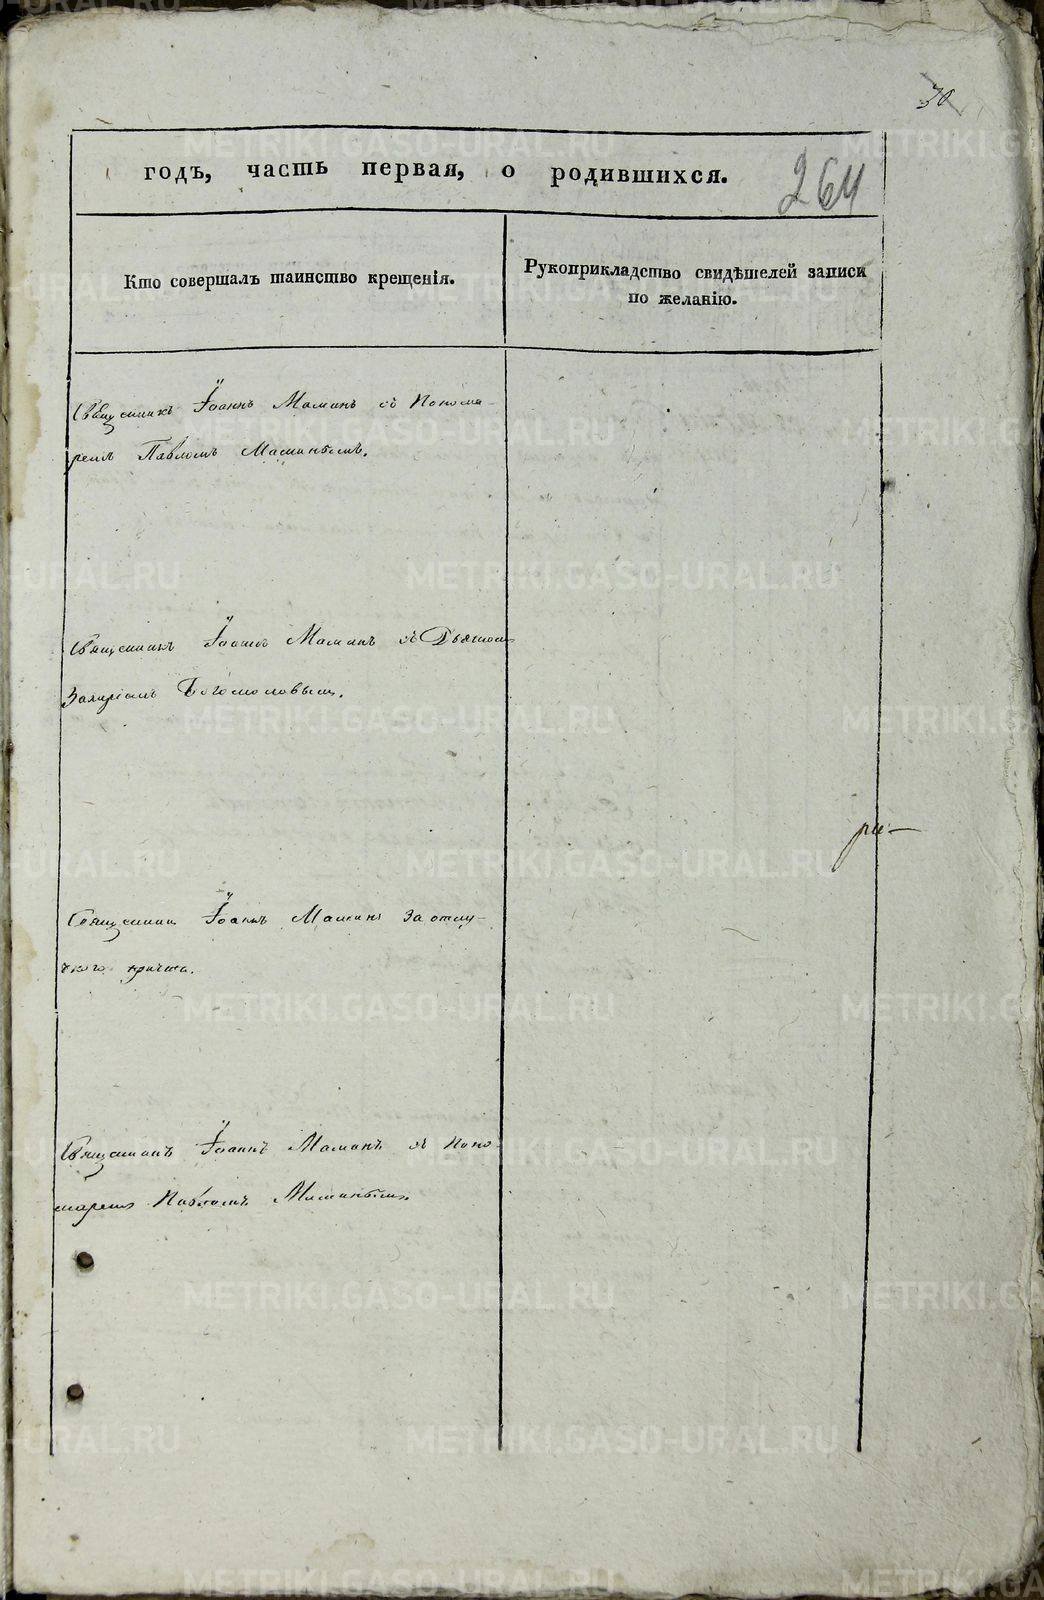 30
годъ, часть первая, о родившихся.
264
Кто совершалъ таинство крещенія.
Рукоприкладство свидѣтелей записи
по желанію.
Священникъ Іоаннъ Маминъ съ Понома-
ремъ Павломъ Маминымъ.
Священникъ Іоаннъ Маминъ съ Дьячкомъ
Захаріемъ Богомоловымъ.
Священникъ Іоаннъ Маминъ За отлу-
чкого причта.
Священникъ Іоаннъ Маминъ съ Поно-
маремъ Павломъ Маминымъ.